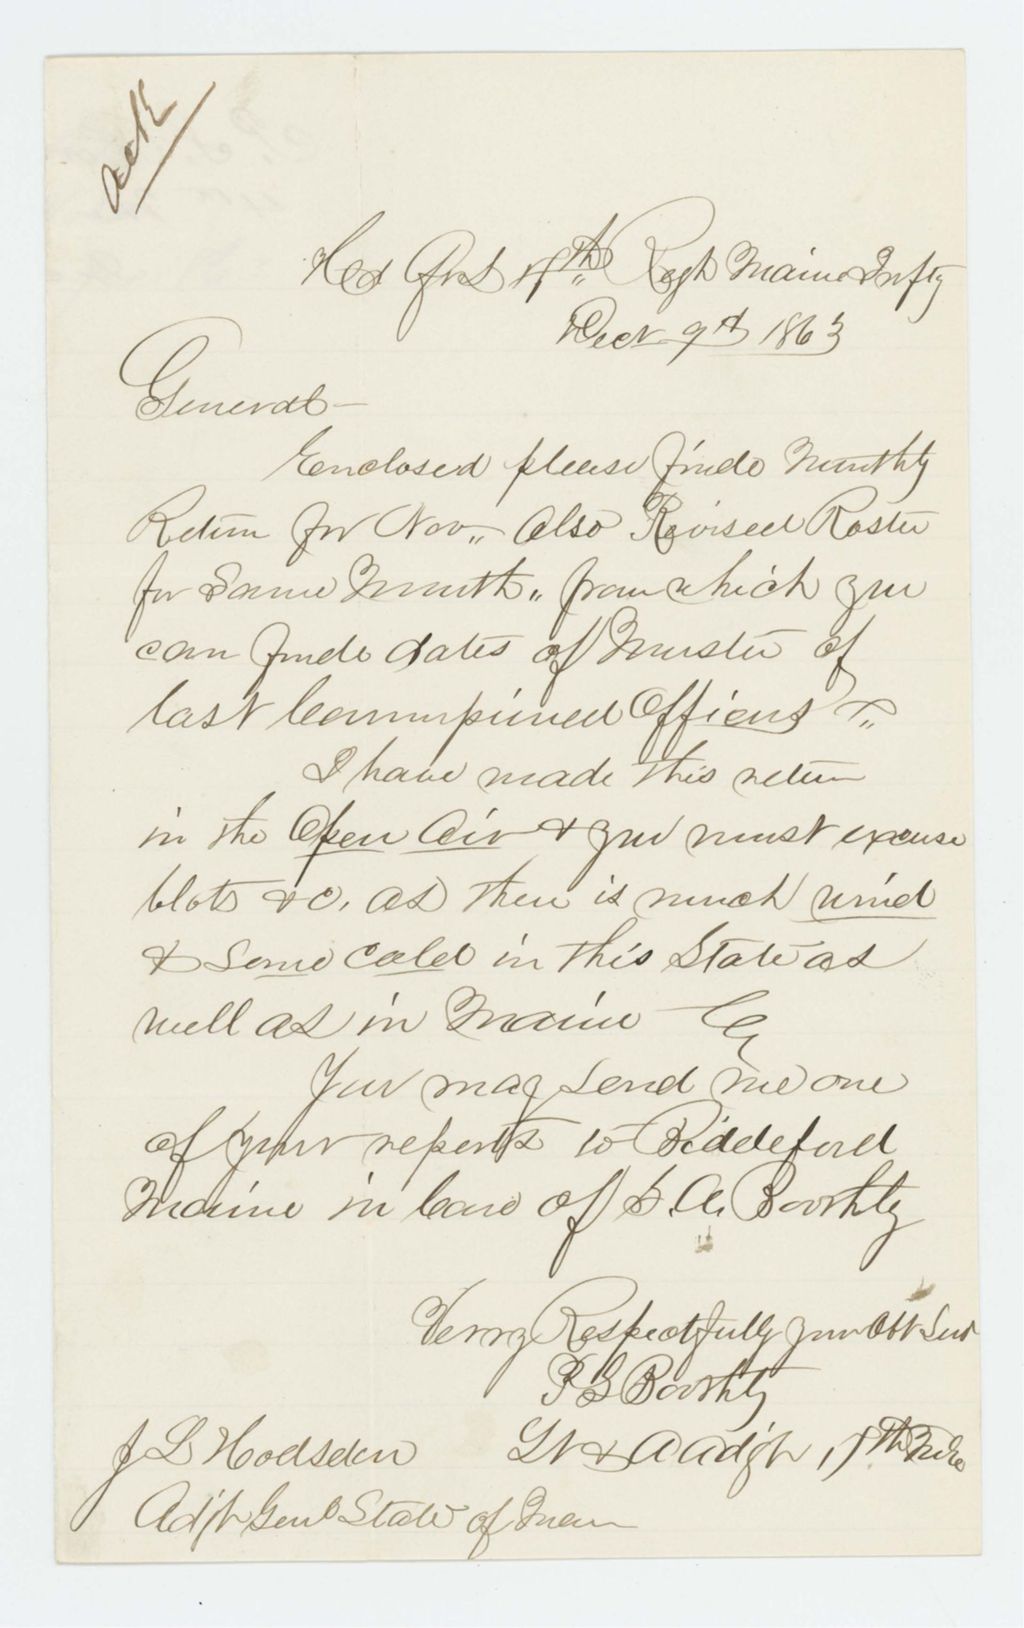 ack
Hed Qrs 17th Regt Maine Infty
Decr 9th 1863
General—
Enclosed please find Monthly
Return for Nov,, Also Revised Roster
for Same Month,, from which you
can find dates of Muster of
last Commissioned Officers
I have made this return
in the Open Air & you must excuse
blots &c. as there is much wind
& some cold in this State as
well as in Maine
You may send me one
of your reports to Biddeford
Maine in Care of A. Boothby
Verry Respectfully your Obt Servt
P S Boothby
Lt & A Adjt 17th Me
J L Hodsdon
Adjt Genl State of